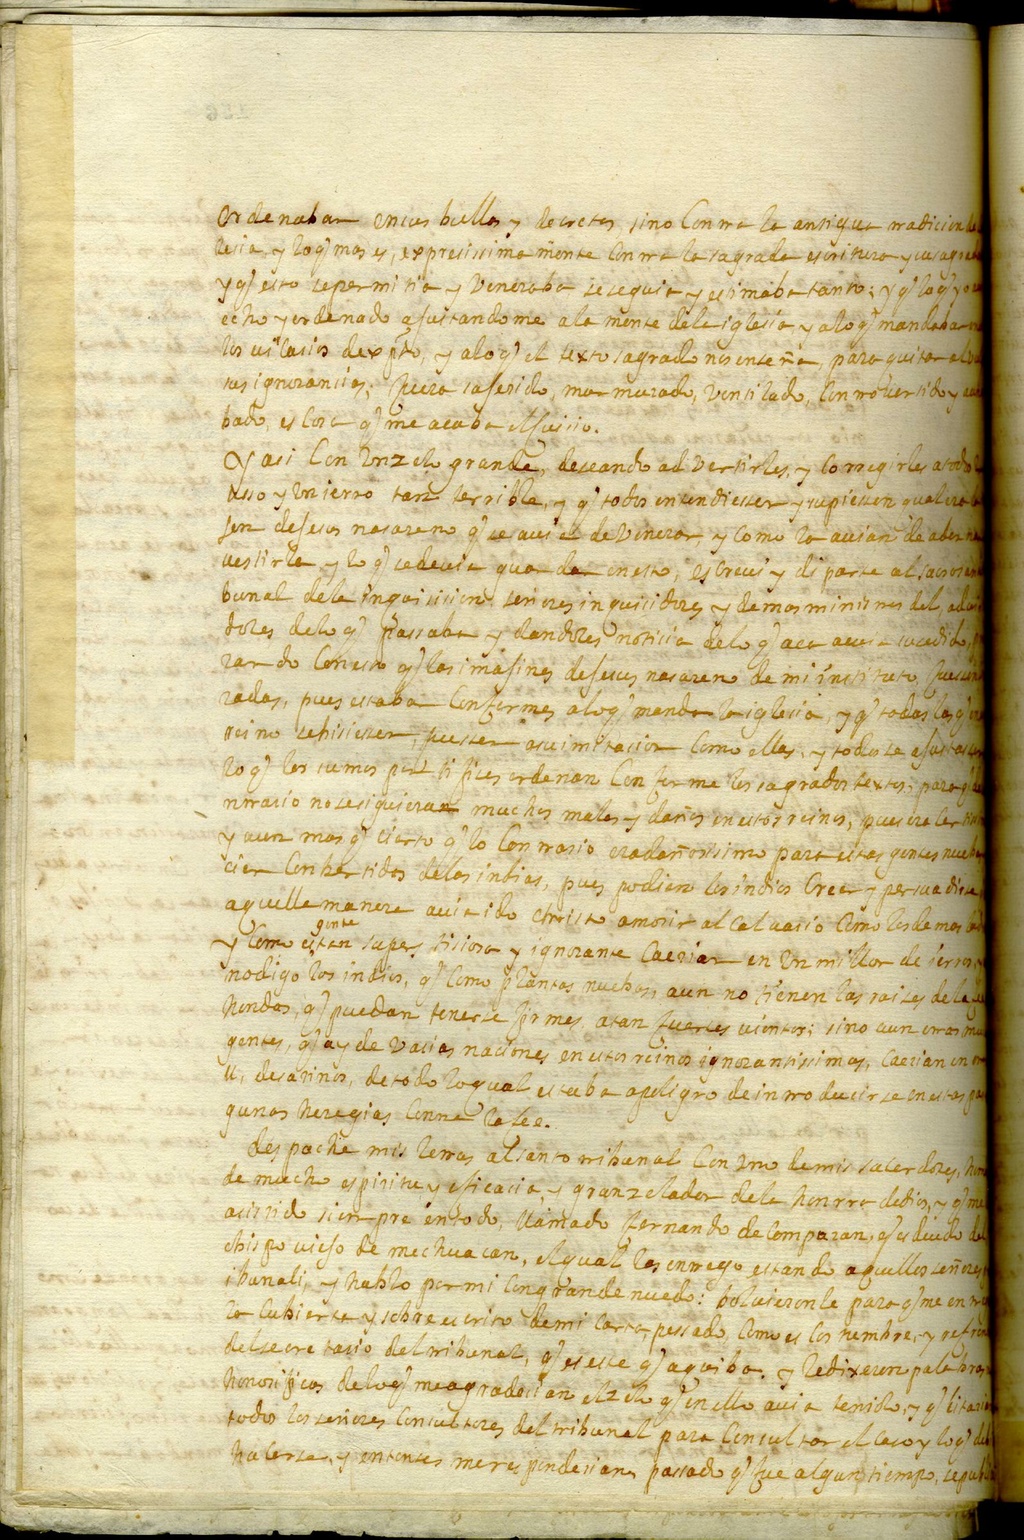 ordenaban en sus bullas y decretos, sino Contra la antigua tradicion de
lesia, y lo q̃ mas es, expresissima mente contra la sagrada escritura y
y q̃ esto se permitia y Veneraba se seguia y estimaba tanto; y q̃ lo q̃ yo
echo y ordenado ajustandome a la mente de la iglesia y a lo q̃ mandaban
los vicarios de xpto, y a lo q̃ el texto sagrado nos enseña, para quitar
tas ignorancias; fuera murmurado, Ventilado, Controvertido y
bado, es Cosa q̃ me acaba el juicio.
Y asi Con Un zelo grande, deseando advertirles, y Corregirles a todos
uso y Un ierro tan terrible, y q̃ todos entendiessen y supiessen qual era
jen de jesus nasareno q̃ se avia de Venerar y Como la avian de
vestirla y lo q̃ se devia guardar en esto, escrevi y di parte al
bunal de la inquisicion señores inquisidores y demas ministros del,
doles de lo q̃ passaba y dandoles noticia de lo q̃ aca avia sucedido,
rando Con esto q̃ las imajines de jesus nasareno de mi instituto,
radas, pues estaban Conformes a lo q̃ manda la iglesia, y q̃ todas las q̃
reino se hisiesen, fuessen a su imitacion Como ellas, y todo se ajustase
lo q̃ los sumos pontifices ordenan Conforme los sagrados textos; para q̃
ntrario no se siguieran muchos males y daños en estos reinos, pues era
y aun mas q̃ cierto q̃ lo Contrario era dañosissimo para estas gentes nueba
cien Conbertidos de las indias, pues podian los indios Creer y persuadirse
aquella manera avia ido christo a morir al Calvario Como los demas
y Como estan gente supersticiosa y ignorante Caerian en Un millon de ierros,
no digo los indios, q̃ Como plantas nuebas, aun no tienen las raises de la fe
hondas, q̃ puedan tenerse firmes a tan fuertes vientos; sino aun otras
gentes, q̃ ay de Varias naciones en estos reinos ignorantissimas, Caerian en
desatinos, de todo lo qual estaba a peligro de introducirse en estas
gunas heregias Contra la fee.
Despaché mis letras al santo tribunal Con Uno de mis sacerdotes,
de mucho espiritu y eficacia, y gran zelador de la honrra de dios, y q̃ me
asistido siempre en todo, llamado fernando de Comparan, q̃ es deudo del
obispo viejo de mechuacan, el qual las entrego estando aquellos señores
ibunali, y hablo por mi Con grande nuedo: bolvieronle para q̃ me
la Cubierta y sobre escrito de mi Carta pessado, Como es Costumbre, y
del secretario del tribunal, q̃ es este q̃ aqui ba. y le dixeron palabras
honorificas de lo q̃ me agradecian el zelo q̃ en ello avia tenido, y q̃ citarian
todos los señores Consultores del tribunal para Consultar el Caso y lo q̃
haserse, y entonses me responderian, passado q̃ fue algun tiempo,